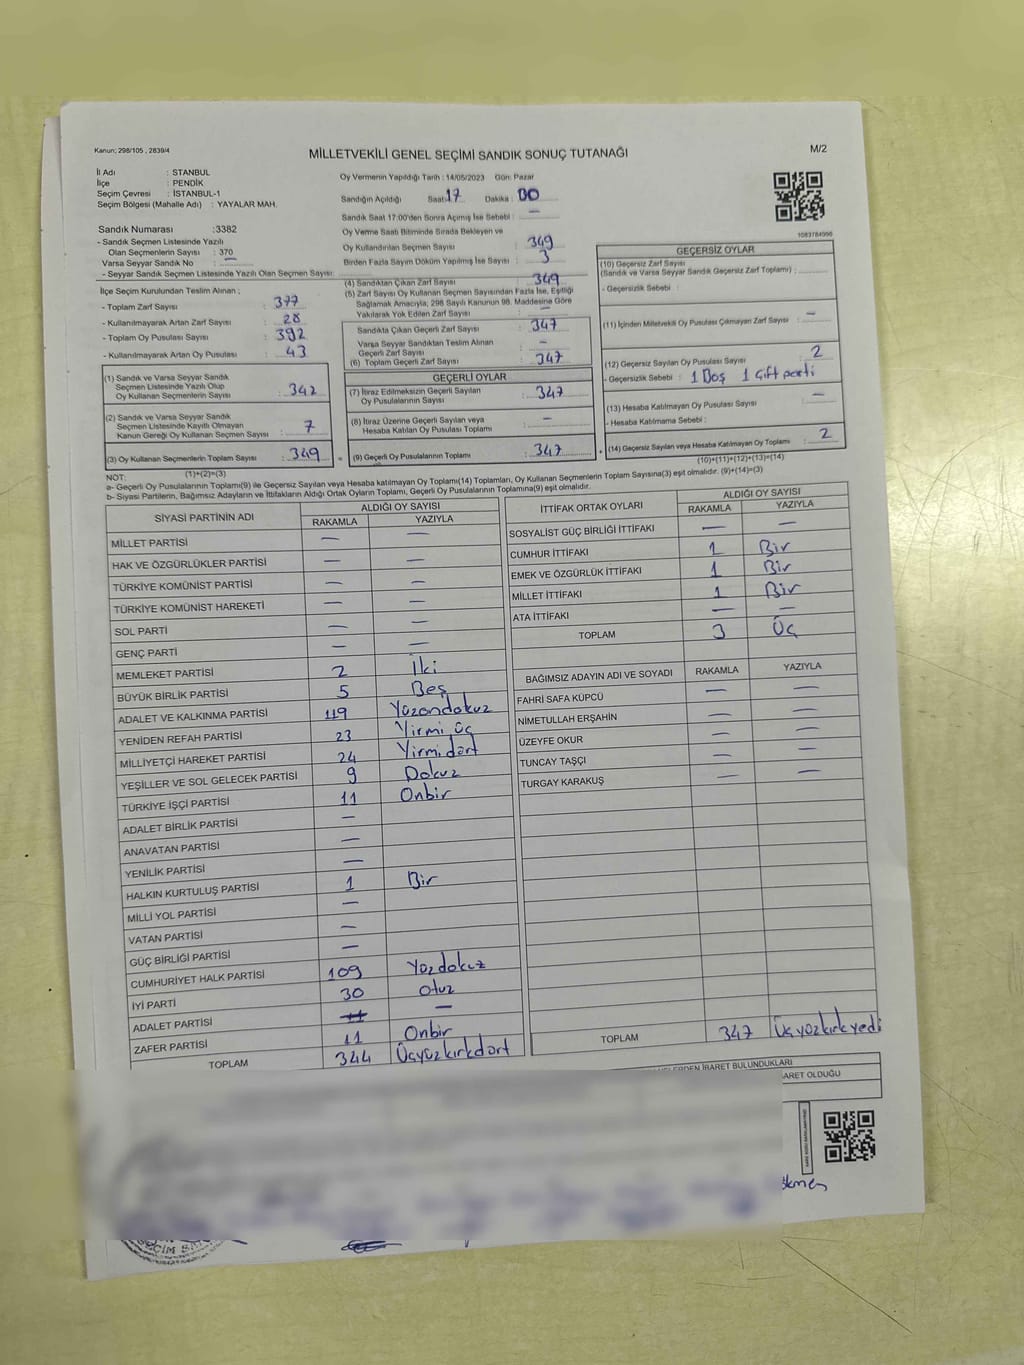 Kanun; 298/105 , 2839/4
MİLLETVEKİLİ GENEL SEÇİMİ SANDIK SONUÇ TUTANAĞI
M/2
İl Adı : STANBUL
İlçe : PENDİK
Seçim Çevresi : İSTANBUL-1
Seçim Bölgesi (Mahalle Adı) : YAYALAR MAH.
Sandık Numarası :3382
- Sandık Seçmen Listesinde Yazılı
Olan Seçmenlerin Sayısı : 370
Varsa Seyyar Sandık No :
- Seyyar Sandık Seçmen Listesinde Yazılı Olan Seçmen Sayısı:
İlçe Seçim Kurulundan Teslim Alınan ;
- Toplam Zarf Sayısı : 377
- Kullanılmayarak Artan Zarf Sayısı : 28
- Toplam Oy Pusulası Sayısı : 392
- Kullanılmayarak Artan Oy Pusulası : 43
(1) Sandık ve Varsa Seyyar Sandık
Seçmen Listesinde Yazılı Olup
Oy Kullanan Seçmenlerin Sayısı : 342
(2) Sandık ve Varsa Seyyar Sandık
Seçmen Listesinde Kayıtlı Olmayan
Kanun Gereği Oy Kullanan Seçmen Sayısı : 7
(3) Oy Kullanan Seçmenlerin Toplam Sayısı : 349
(1)+(2)=(3)
Oy Vermenin Yapıldığı Tarih : 14/05/2023 Gün: Pazar
Sandığın Açıldığı Saat: 17 Dakika : 00
Sandık Saat 17:00'den Sonra Açılmış İse Sebebi : —
Oy Verme Saati Bitiminde Sırada Bekleyen ve
Oy Kullandırılan Seçmen Sayısı : 349
Birden Fazla Sayım Döküm Yapılmış İse Sayısı : 3
(4) Sandıktan Çıkan Zarf Sayısı : 349
(5) Zarf Sayısı Oy Kullanan Seçmen Sayısından Fazla İse, Eşitliği
Sağlamak Amacıyla, 298 Sayılı Kanunun 98. Maddesine Göre
Yakılarak Yok Edilen Zarf Sayısı : —
Sandıkta Çıkan Geçerli Zarf Sayısı : 347
Varsa Seyyar Sandıktan Teslim Alınan
Geçerli Zarf Sayısı : —
(6) Toplam Geçerli Zarf Sayısı : 347
GEÇERLİ OYLAR
(7) İtiraz Edilmeksizin Geçerli Sayılan
Oy Pusulalarının Sayısı : 347
(8) İtiraz Üzerine Geçerli Sayılan veya
Hesaba Katılan Oy Pusulası Toplamı : —
(9) Geçerli Oy Pusulalarının Toplamı : 347
1083784996
GEÇERSİZ OYLAR
(10) Geçersiz Zarf Sayısı
(Sandık ve Varsa Seyyar Sandık Geçersiz Zarf Toplamı) :
- Geçersizlik Sebebi :
(11) İçinden Milletvekili Oy Pusulası Çıkmayan Zarf Sayısı : —
(12) Geçersiz Sayılan Oy Pusulası Sayısı : 2
- Geçersizlik Sebebi : 1 Boş 1 Çift parti
(13) Hesaba Katılmayan Oy Pusulası Sayısı : —
- Hesaba Katılmama Sebebi :
(14) Geçersiz Sayılan veya Hesaba Katılmayan Oy Toplamı : 2
(10)+(11)+(12)+(13)=(14)
NOT:
a- Geçerli Oy Pusulalarının Toplamı(9) ile Geçersiz Sayılan veya Hesaba katılmayan Oy Toplamı(14) Toplamları, Oy Kullanan Seçmenlerin Toplam Sayısına(3) eşit olmalıdır. (9)+(14)=(3)
b- Siyasi Partilerin, Bağımsız Adayların ve İttifakların Aldığı Ortak Oyların Toplamı, Geçerli Oy Pusulalarının Toplamına(9) eşit olmalıdır.
SİYASİ PARTİNİN ADI ALDIĞI OY SAYISI
RAKAMLA YAZIYLA
MİLLET PARTİSİ — —
HAK VE ÖZGÜRLÜKLER PARTİSİ — —
TÜRKİYE KOMÜNİST PARTİSİ — —
TÜRKİYE KOMÜNİST HAREKETİ — —
SOL PARTİ — —
GENÇ PARTİ — —
MEMLEKET PARTİSİ 2 İki
BÜYÜK BİRLİK PARTİSİ 5 Beş
ADALET VE KALKINMA PARTİSİ 119 Yüzondokuz
YENİDEN REFAH PARTİSİ 23 Yirmi üç
MİLLİYETÇİ HAREKET PARTİSİ 24 Yirmidört
YEŞİLLER VE SOL GELECEK PARTİSİ 9 Dokuz
TÜRKİYE İŞÇİ PARTİSİ 11 Onbir
ADALET BİRLİK PARTİSİ —
ANAVATAN PARTİSİ —
YENİLİK PARTİSİ —
HALKIN KURTULUŞ PARTİSİ 1 Bir
MİLLİ YOL PARTİSİ —
VATAN PARTİSİ —
GÜÇ BİRLİĞİ PARTİSİ —
CUMHURİYET HALK PARTİSİ 109 Yüzdokuz
İYİ PARTİ 30 Otuz
ADALET PARTİSİ —
ZAFER PARTİSİ 11 Onbir
TOPLAM 344 Üçyüzkırkdört
İTTİFAK ORTAK OYLARI ALDIĞI OY SAYISI
RAKAMLA YAZIYLA
SOSYALİST GÜÇ BİRLİĞİ İTTİFAKI — —
CUMHUR İTTİFAKI 1 Bir
EMEK VE ÖZGÜRLÜK İTTİFAKI 1 Bir
MİLLET İTTİFAKI 1 Bir
ATA İTTİFAKI — —
TOPLAM 3 Üç
BAĞIMSIZ ADAYIN ADI VE SOYADI RAKAMLA YAZIYLA
FAHRİ SAFA KÜPCÜ — —
NİMETULLAH ERŞAHİN — —
ÜZEYFE OKUR — —
TUNCAY TAŞÇI — —
TURGAY KARAKUŞ — —
TOPLAM 347 Üçyüzkırkyedi
İBARET BULUNDUKLARI
ARET OLDUĞU